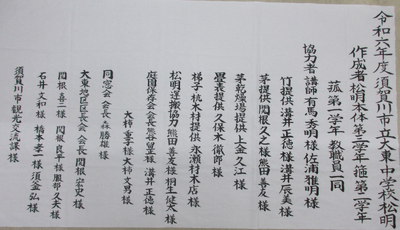 令和六年度須賀川市立大東中学校松明
作成者 松明本体第三学年 箍第二学年
菰第一学年 教職員一同
協力者 講師 有馬秀明様 佐浦雅明様
竹提供 溝井正徳様 溝井辰美様
茅提供 関根久之様 熊田善友様
茅乾燥場提供 上金久江様
畳表提供 久保木徹郎様
梯子杭木材提供 永瀬材木店様
松明運搬協力 熊田善友様 桐生健太様
庭園保存会会長 熊谷留至様 溝井正徳様
大柿重子様 大柿文男様
同窓会会長 森勝雄様
大東地区区長会会長 関根宏史様
関根喜二様 関根良平様 服部久夫様
石井文和様 橋本孝一様 須釜弘様
須賀川市観光交流課様